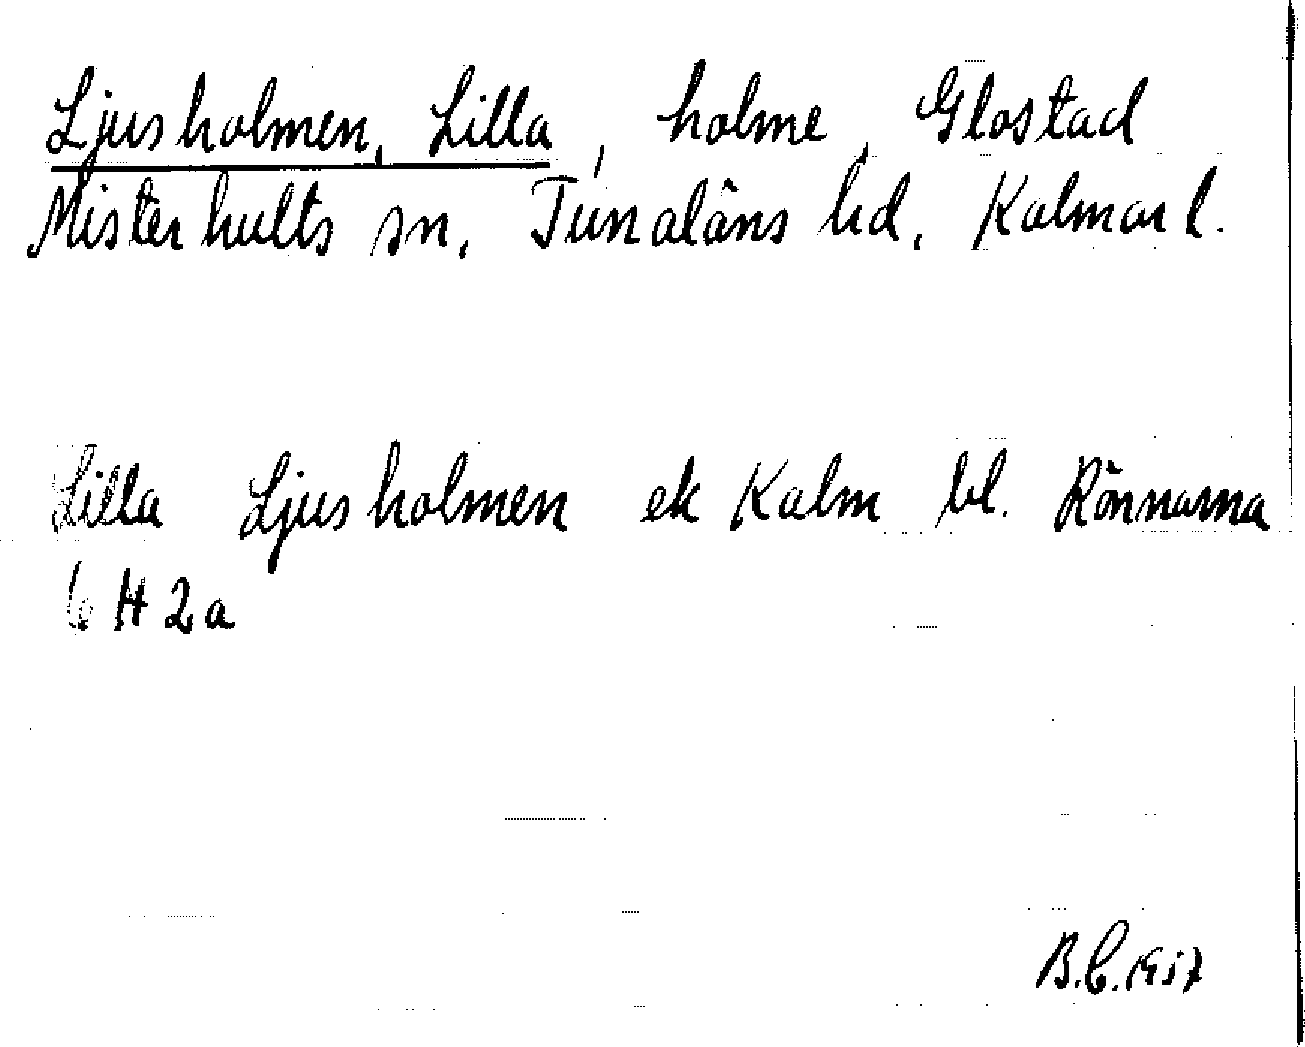 Ljusholmen, Lilla, holme, Glostad
Misterhults sn, Tunaläns hd, Kalmar l.
Lilla Ljusholmen ek Kalm bl. Rönnarna
6 H 2 a
B.C. 1957